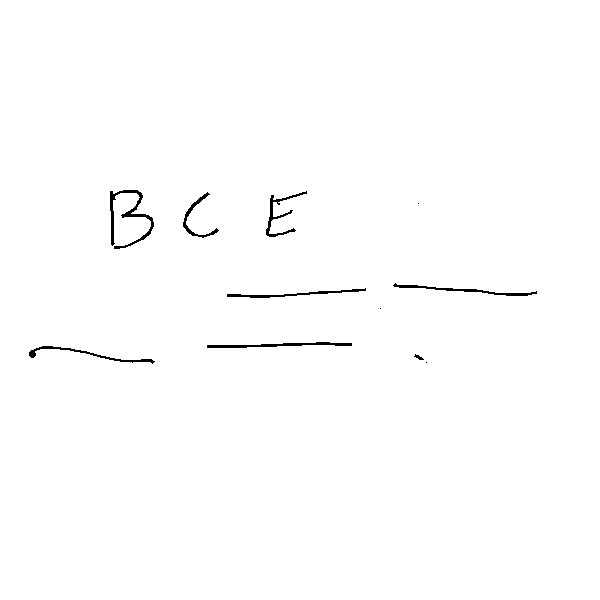 B C E